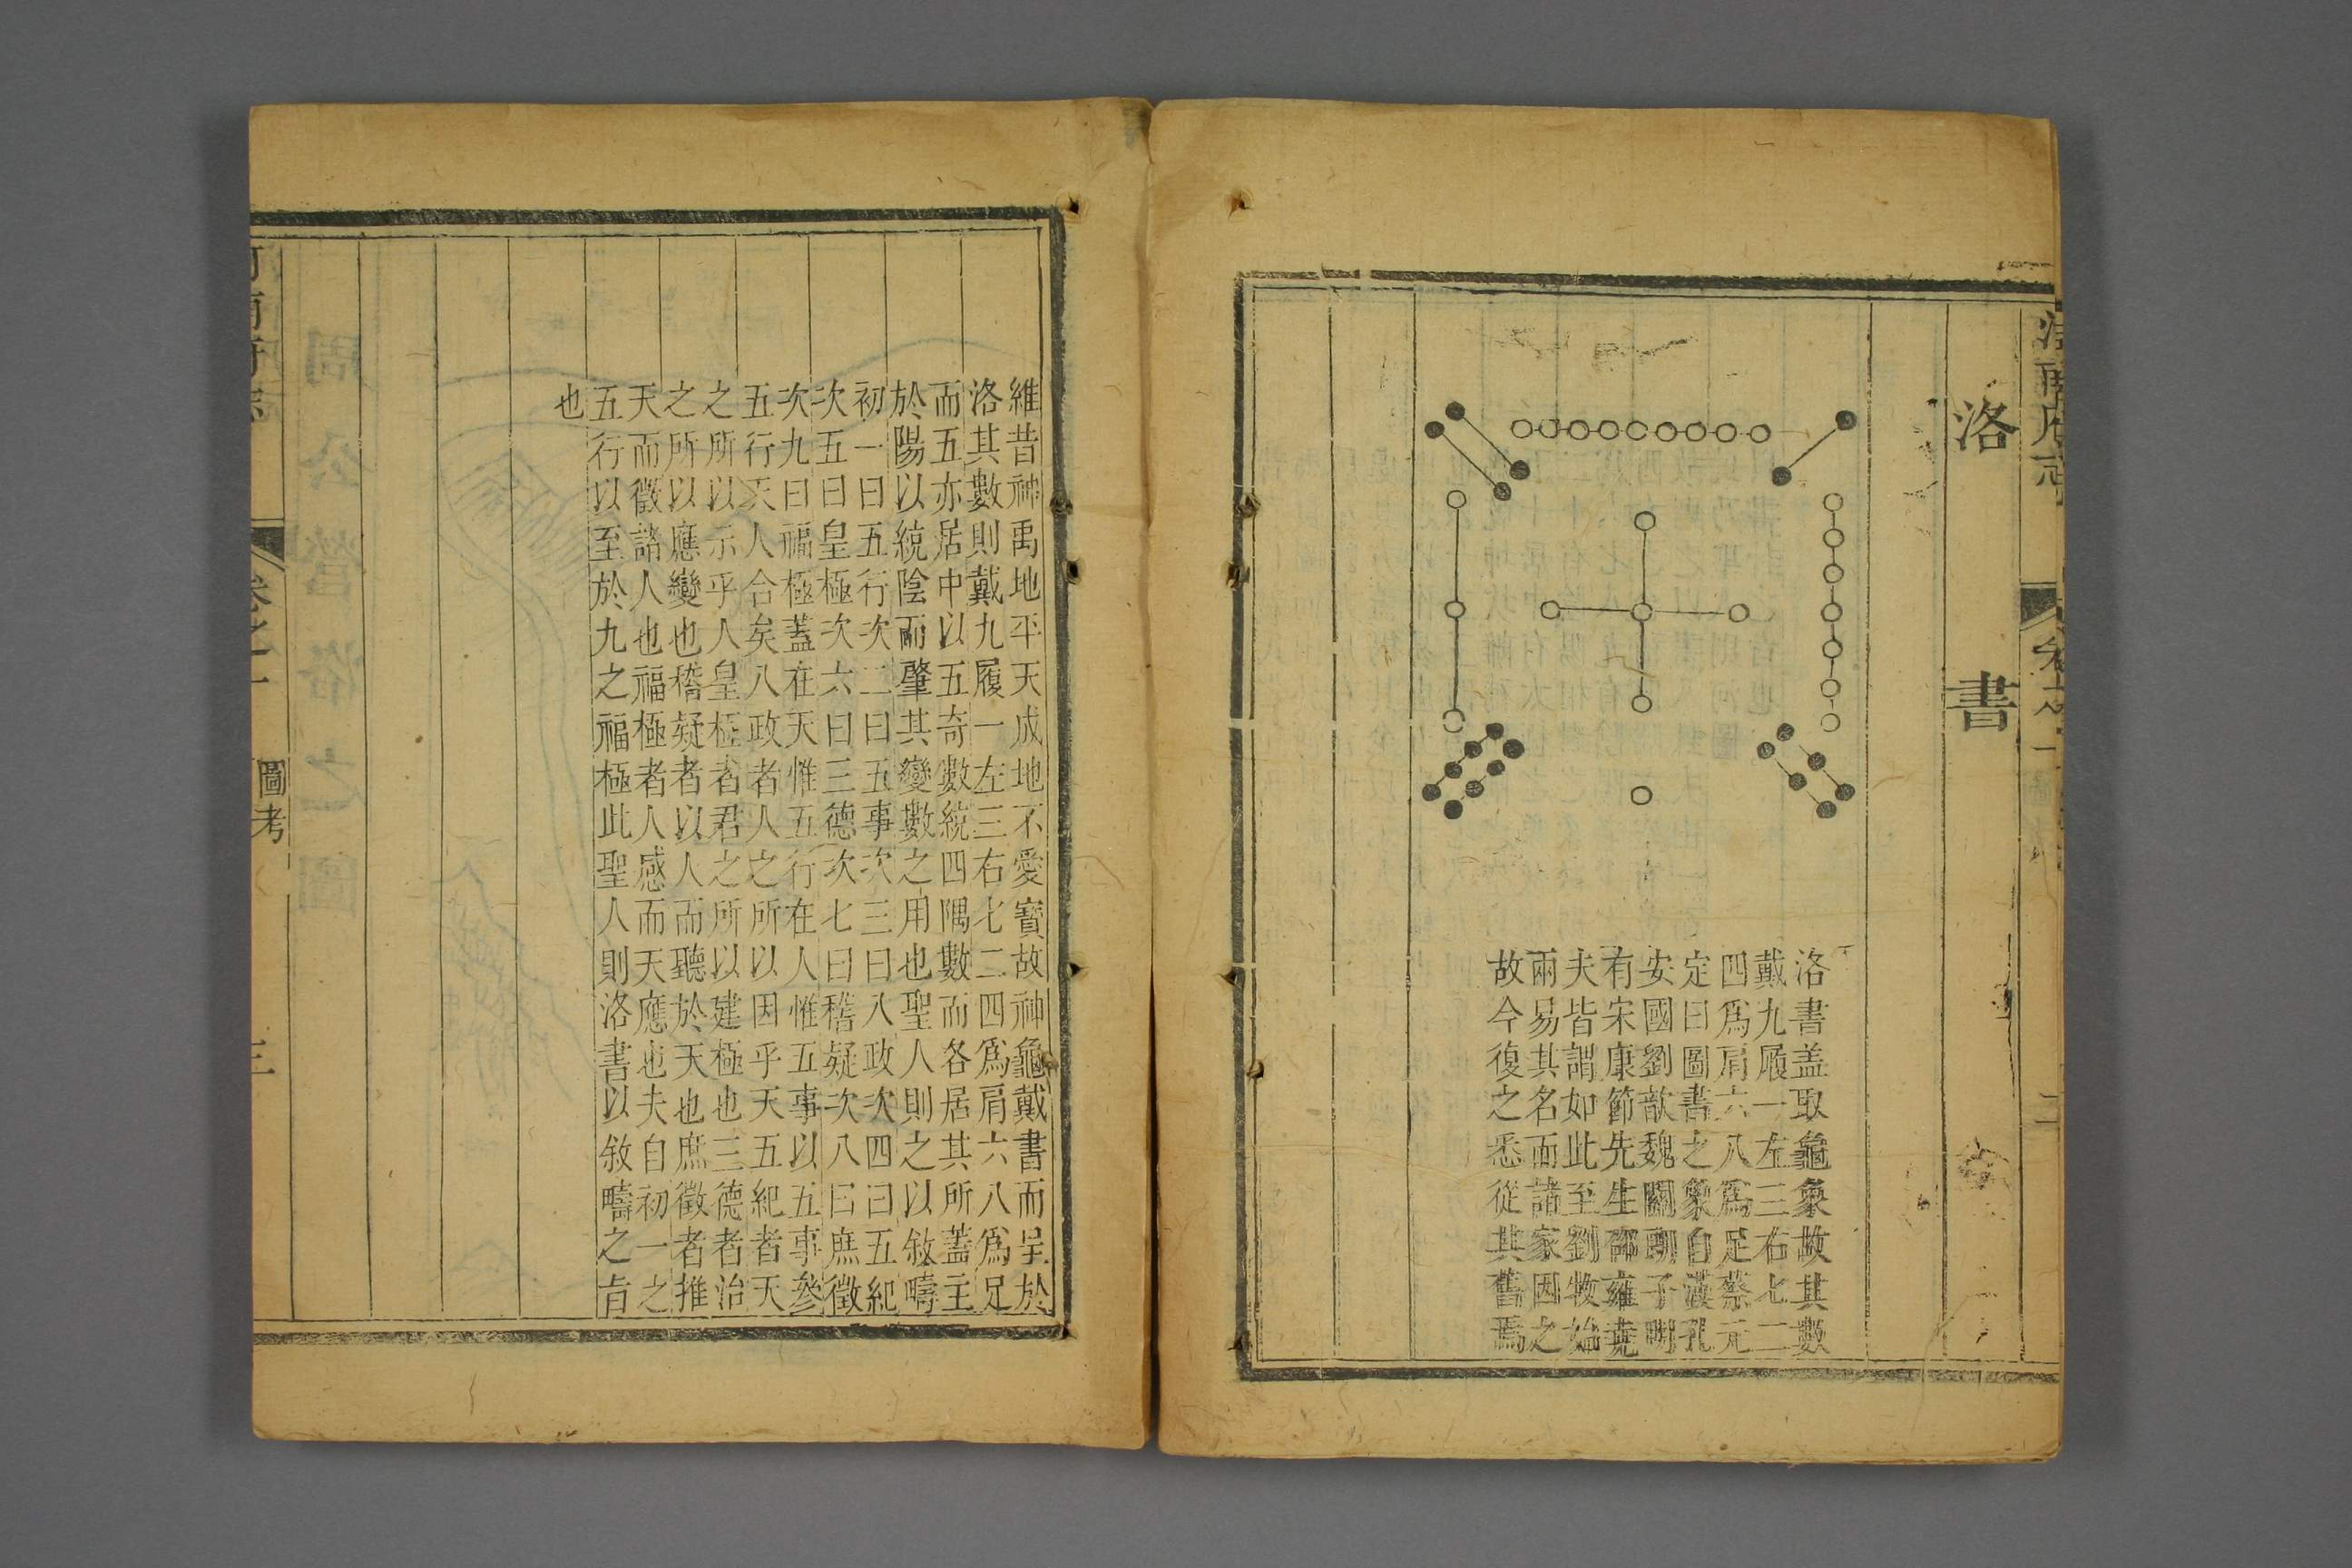 河南府志 卷之一 二
洛書
洛書盖取龜象故其數
戴九履一左三右七二
四爲肩六八爲足蔡元
定曰圖書之象自漢孔
安國劉歆魏關朗子明
有宋康節先生邵雍堯
夫皆謂如此至劉牧始
兩易其名而諸家因之
故今復之悉從其舊焉
維昔神禹地平天成地不愛寶故神龜戴書而呈於
洛其數則戴九履一左三右七二四爲肩六八爲足
而五亦居中以五奇數統四隅數而各居其所蓋主
於陽以統陰而肇其變數之用也聖人則之以敘疇
初一曰五行次二曰五事次三曰八政次四曰五紀
次五曰皇極次六曰三德次七曰稽疑次八曰庶徵
次九曰福極蓋在天惟五行在人惟五事以五事參
五行天人合矣八政者人之所以因乎天五紀者天
之所以示乎人皇極者君之所以建極也三德者治
之所以應變也稽疑者以人而聽於天也庶徵者推
天而徵諸人也福極者人感而天應也夫自初一之
五行以至於九之福極此聖人則洛書以敘疇之旨
也
河南府志 卷之一 圖考 三